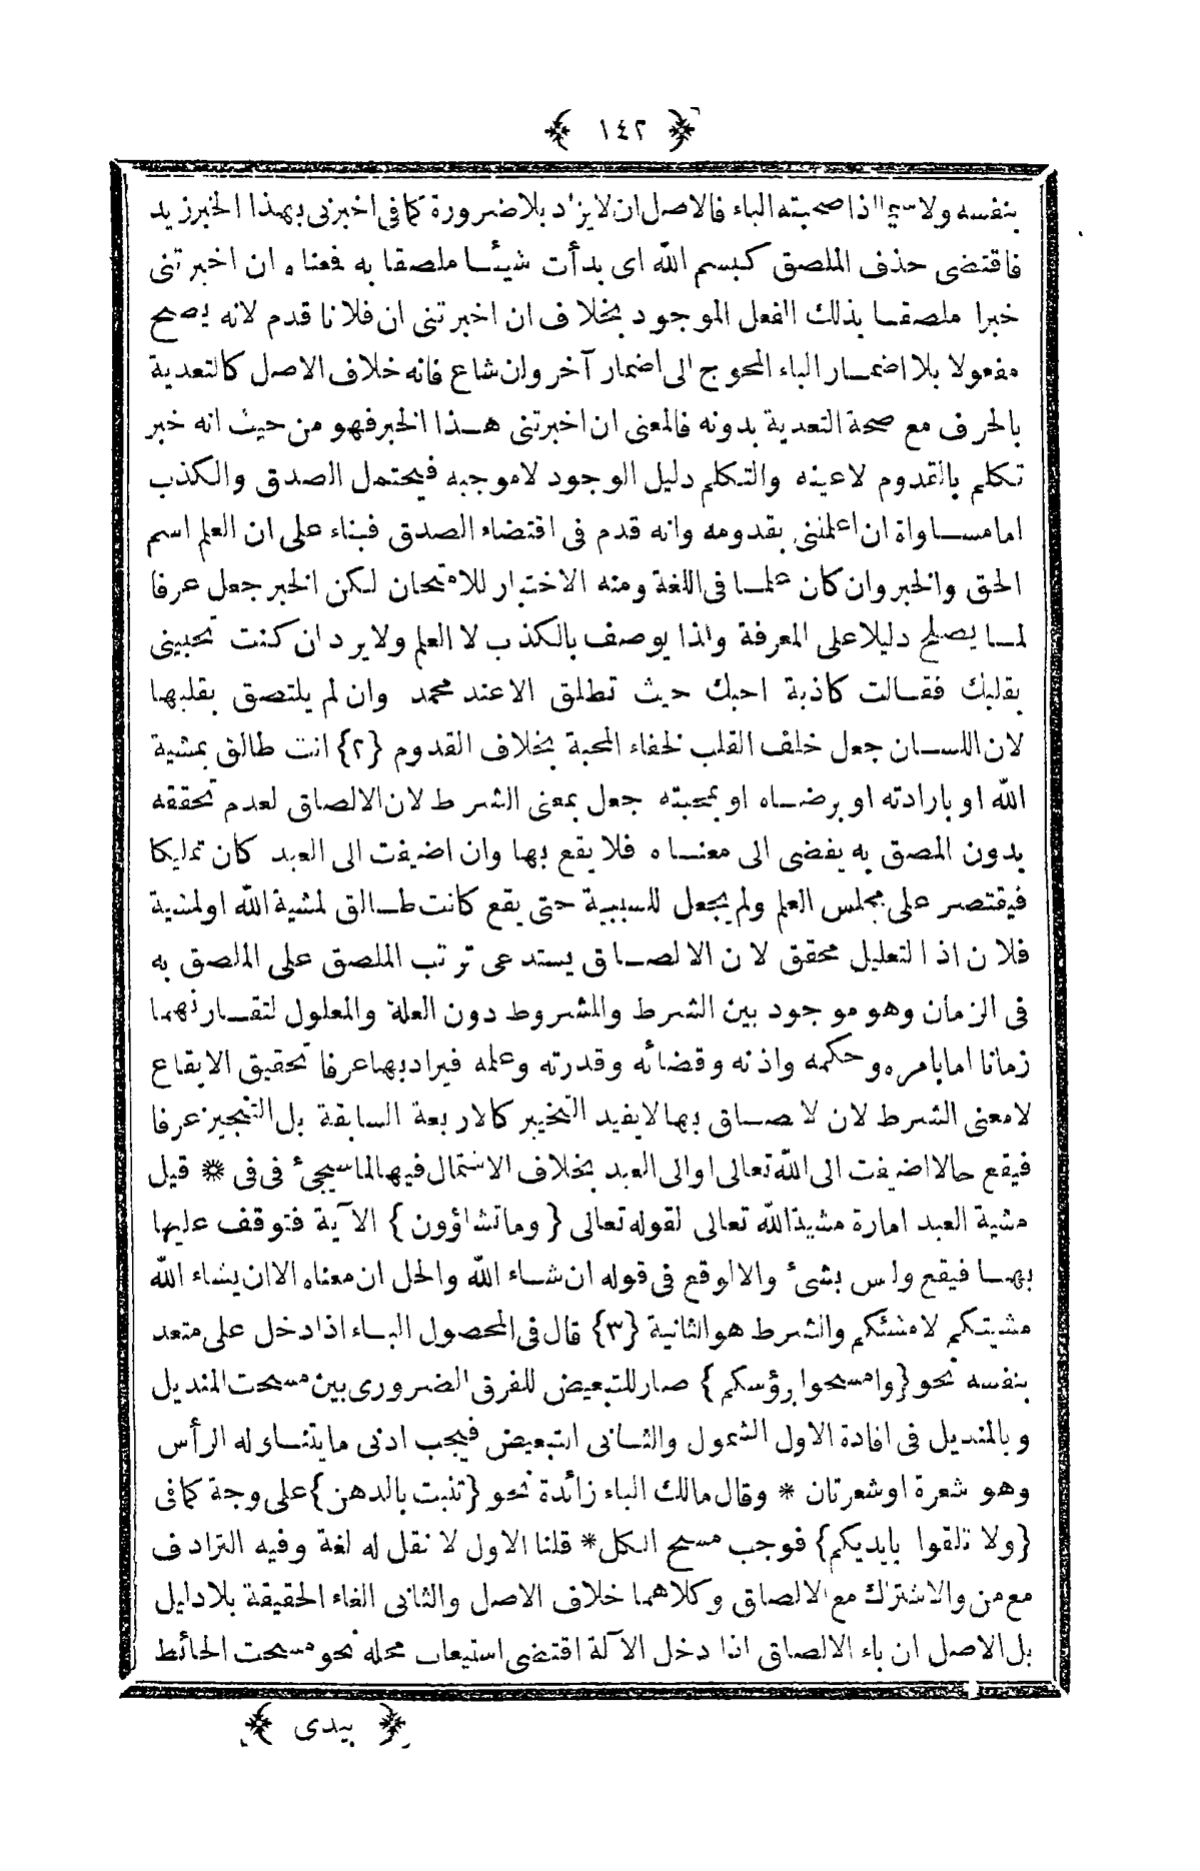 ﴿ ١٤٢ ﴾
بنفسه ولا سيما اذا صحبته الباء فالاصل ان لا يزاد بلا ضرورة كما فى اخبرنى بهذا الخبر زيد
فاقتضى حذف الملصق كبسم الله اى بدأت شيئا ملصقا به فمعناه ان اخبرتنى
خبرا ملصقا بذلك الفعل الموجود بخلاف ان اخبرتنى ان فلانا قدم لانه يصح
مفعولا بلا اضمار الباء المحوج الى اضمار آخر وان شاع فانه خلاف الاصل كالتعدية
بالحرف مع صحة التعدية بدونه فالمعنى ان اخبرتنى هذا الخبر فهو من حيث انه خبر
تكلم بالقدوم لا عينه والتكلم دليل الوجود لا موجبه فيحتمل الصدق والكذب
اما مساواة ان اعلمتنى بقدومه وانه قدم فى اقتضاء الصدق فبناء على ان العلم اسم
الحق والخبر وان كان علما فى اللغة ومنه الاختبار للامتحان لكن الخبر جعل عرفا
لما يصلح دليلا على المعرفة ولذا يوصف بالكذب لا العلم ولا يرد ان كنت تحبيننى
بقلبك فقالت كاذبة احبك حيث تطلق الا عند محمد وان لم يلتصق بقلبها
لان اللسان جعل خلف القلب لخفاء المحبة بخلاف القدوم {٢} انت طالق بمشية
الله او بارادته او برضاه او بمحبته جعل بمعنى الشرط لان الالصاق لعدم تحققه
بدون الملصق به يفضى الى معناه فلا يقع بها وان اضيفت الى العبد كان تمليكا
فيقتصر على مجلس العلم ولم يجعل للسببية حتى يقع كانت طالق لمشية الله او لمشية
فلان اذ التعليل محقق لان الالصاق يستدعى ترتب الملصق على الملصق به
فى الزمان وهو موجود بين الشرط والمشروط دون العلة والمعلول لتقارنهما
زمانا اما بامره وحكمه واذنه وقضائه وقدرته وعلمه فيراد بها عرفا تحقيق الايقاع
لا معنى الشرط لان لا صاق بها لا يفيد التخيير كالاربعة السابقة بل التنجيز عرفا
فيقع حالا اضيفت الى الله تعالى او الى العبد بخلاف الاشتمال فيها لما سيجئ فى فى * قيل
مشية العبد امارة مشية الله تعالى لقوله تعالى {وما تشاؤون} الآية فتوقف عليها
بها فيقع وليس بشئ والا لوقع فى قوله ان شاء الله والحل ان معناه الا ان يشاء الله
مشيتكم لا مشئكم والشرط هو الثانية {٣} قال فى المحصول الباء اذا دخل على متعد
بنفسه نحو {وامسحوا برؤسكم} صار للتبعيض للفرق الضرورى بين مسحت المنديل
وبالمنديل فى افادة الاول الشمول والثانى التبعيض فيجب ادنى ما يتناوله الرأس
وهو شعرة او شعرتان * وقال مالك الباء زائدة نحو {تنبت بالدهن} على وجة كما فى
{ولا تلقوا بايديكم} فوجب مسح الكل * قلنا الاول لا نقل له لغة وفيه الترادف
مع من والاشتراك مع الالصاق وكلاهما خلاف الاصل والثانى الغاء الحقيقة بلا دليل
بل الاصل ان باء الالصاق اذا دخل الآلة اقتضى استيعاب محله نحو مسحت الحائط
﴿ بيدى ﴾